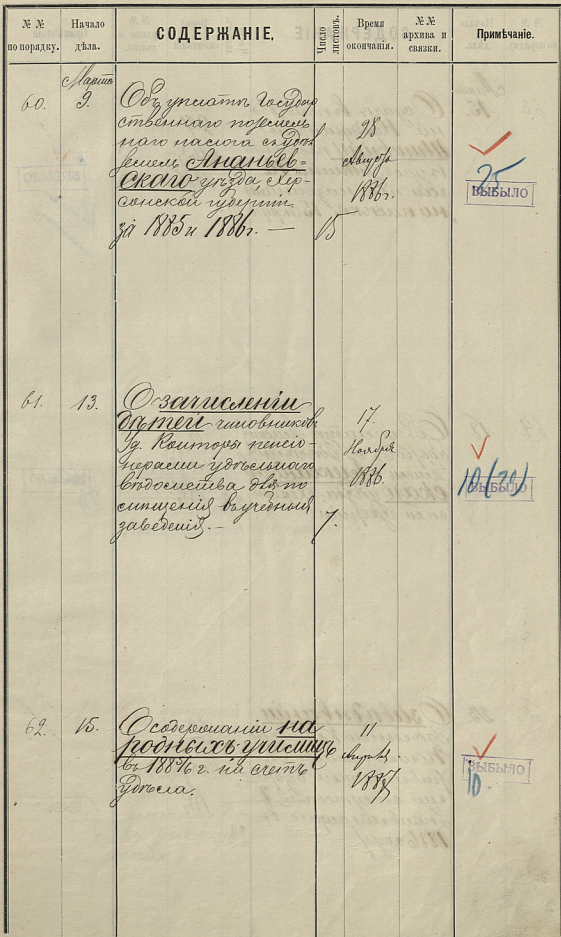 № № по порядку.
Начало дѣла.
СОДЕРЖАНІЕ.
Число листовъ.
Время окончанія.
№№ архива и связки.
Примѣчаніе.
Марта
60.
9.
Объ уплатѣ Государ
ственнаго поземель
наго налога съ удѣл
земель Ананьев-
скаго уѣзда, Хер-
сонской губерніи
за 1885 и 1886 г. —
15
28
Августа
1886 г.
25
ВЫБЫЛО
61.
13.
О зачисленіи
дѣтей чиновниковъ
Уд. Конторы пенсіо-
нерами удѣльнаго
вѣдомства для по
мѣщенія въ учебныя
заведенія. —
7.
17.
Ноября
1886.
10 (70)
ВЫБЫЛО
62.
15.
О содержаніи на
родныхъ училищъ
въ 1885/6 г. на счетъ
Удѣла.
11
Апрѣля
1887
ВЫБЫЛО
10